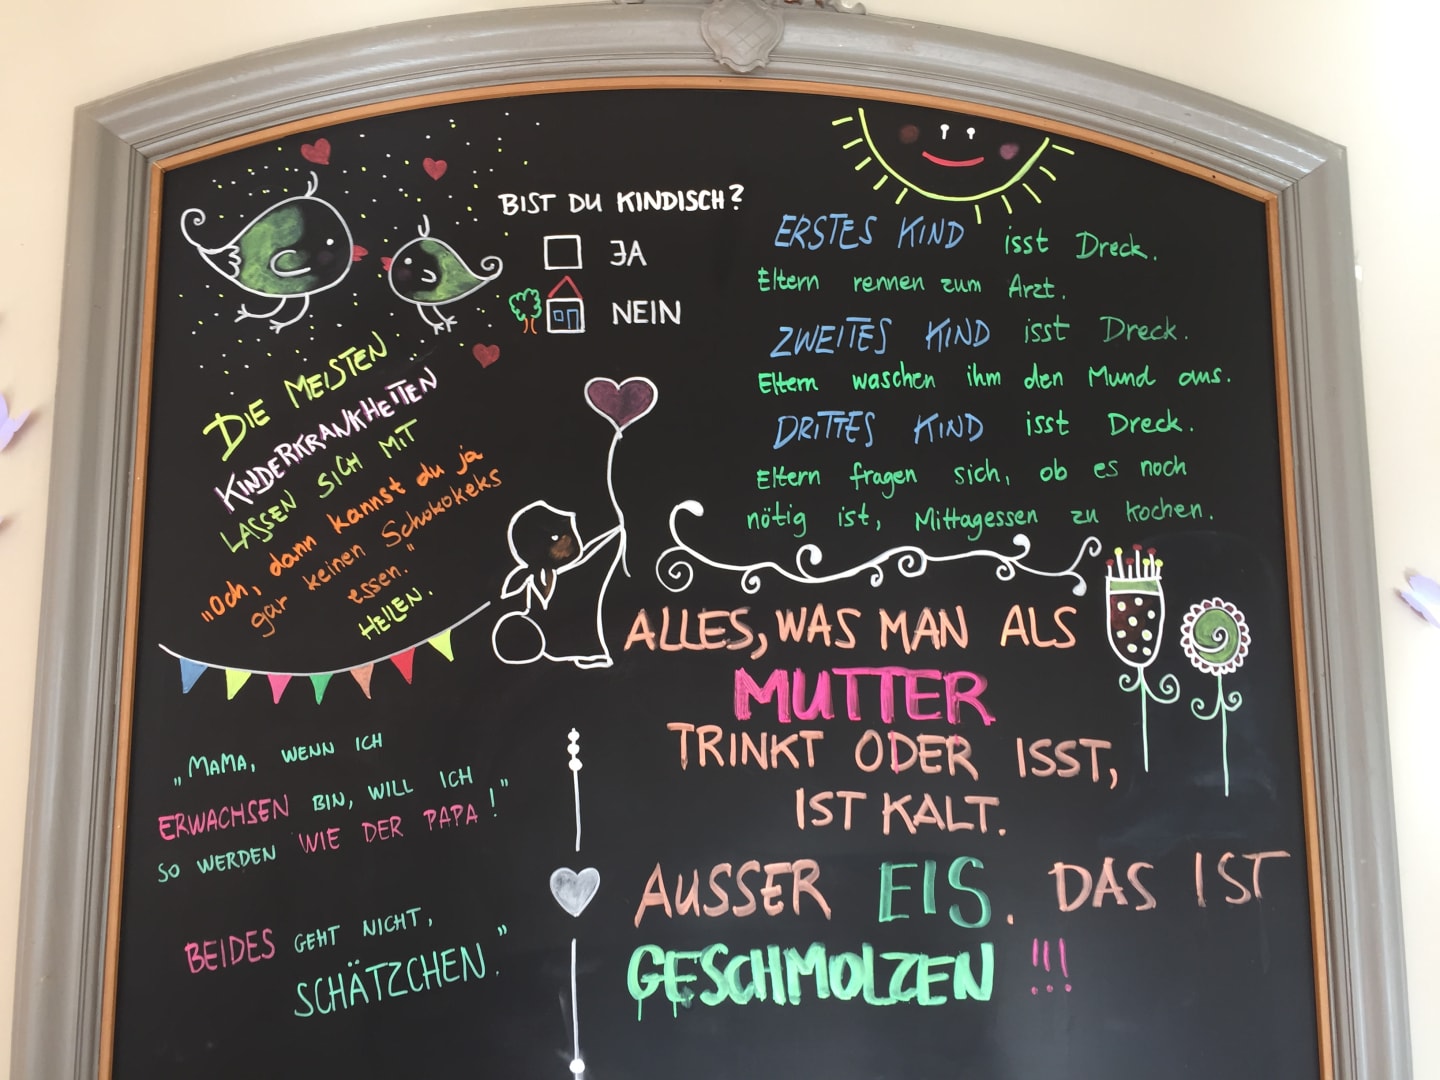 BIST DU KINDISCH?
JA
NEIN
ERSTES KIND isst Dreck.
Eltern rennen zum Arzt.
ZWEITES KIND isst Dreck.
Eltern waschen ihm den Mund aus.
DRITTES KIND isst Dreck.
Eltern fragen sich, ob es noch
nötig ist, Mittagessen zu kochen.
DIE MEISTEN
KINDERKRANKHEITEN
LASSEN SICH MIT
„Och, dann kannst du ja
gar keinen Schokokeks
essen."
HEILEN.
ALLES, WAS MAN ALS
MUTTER
TRINKT ODER ISST,
IST KALT.
AUSSER EIS. DAS IST
GESCHMOLZEN!!!
„MAMA, WENN ICH
ERWACHSEN BIN, WILL ICH
SO WERDEN WIE DER PAPA!"
BEIDES GEHT NICHT,
SCHÄTZCHEN."